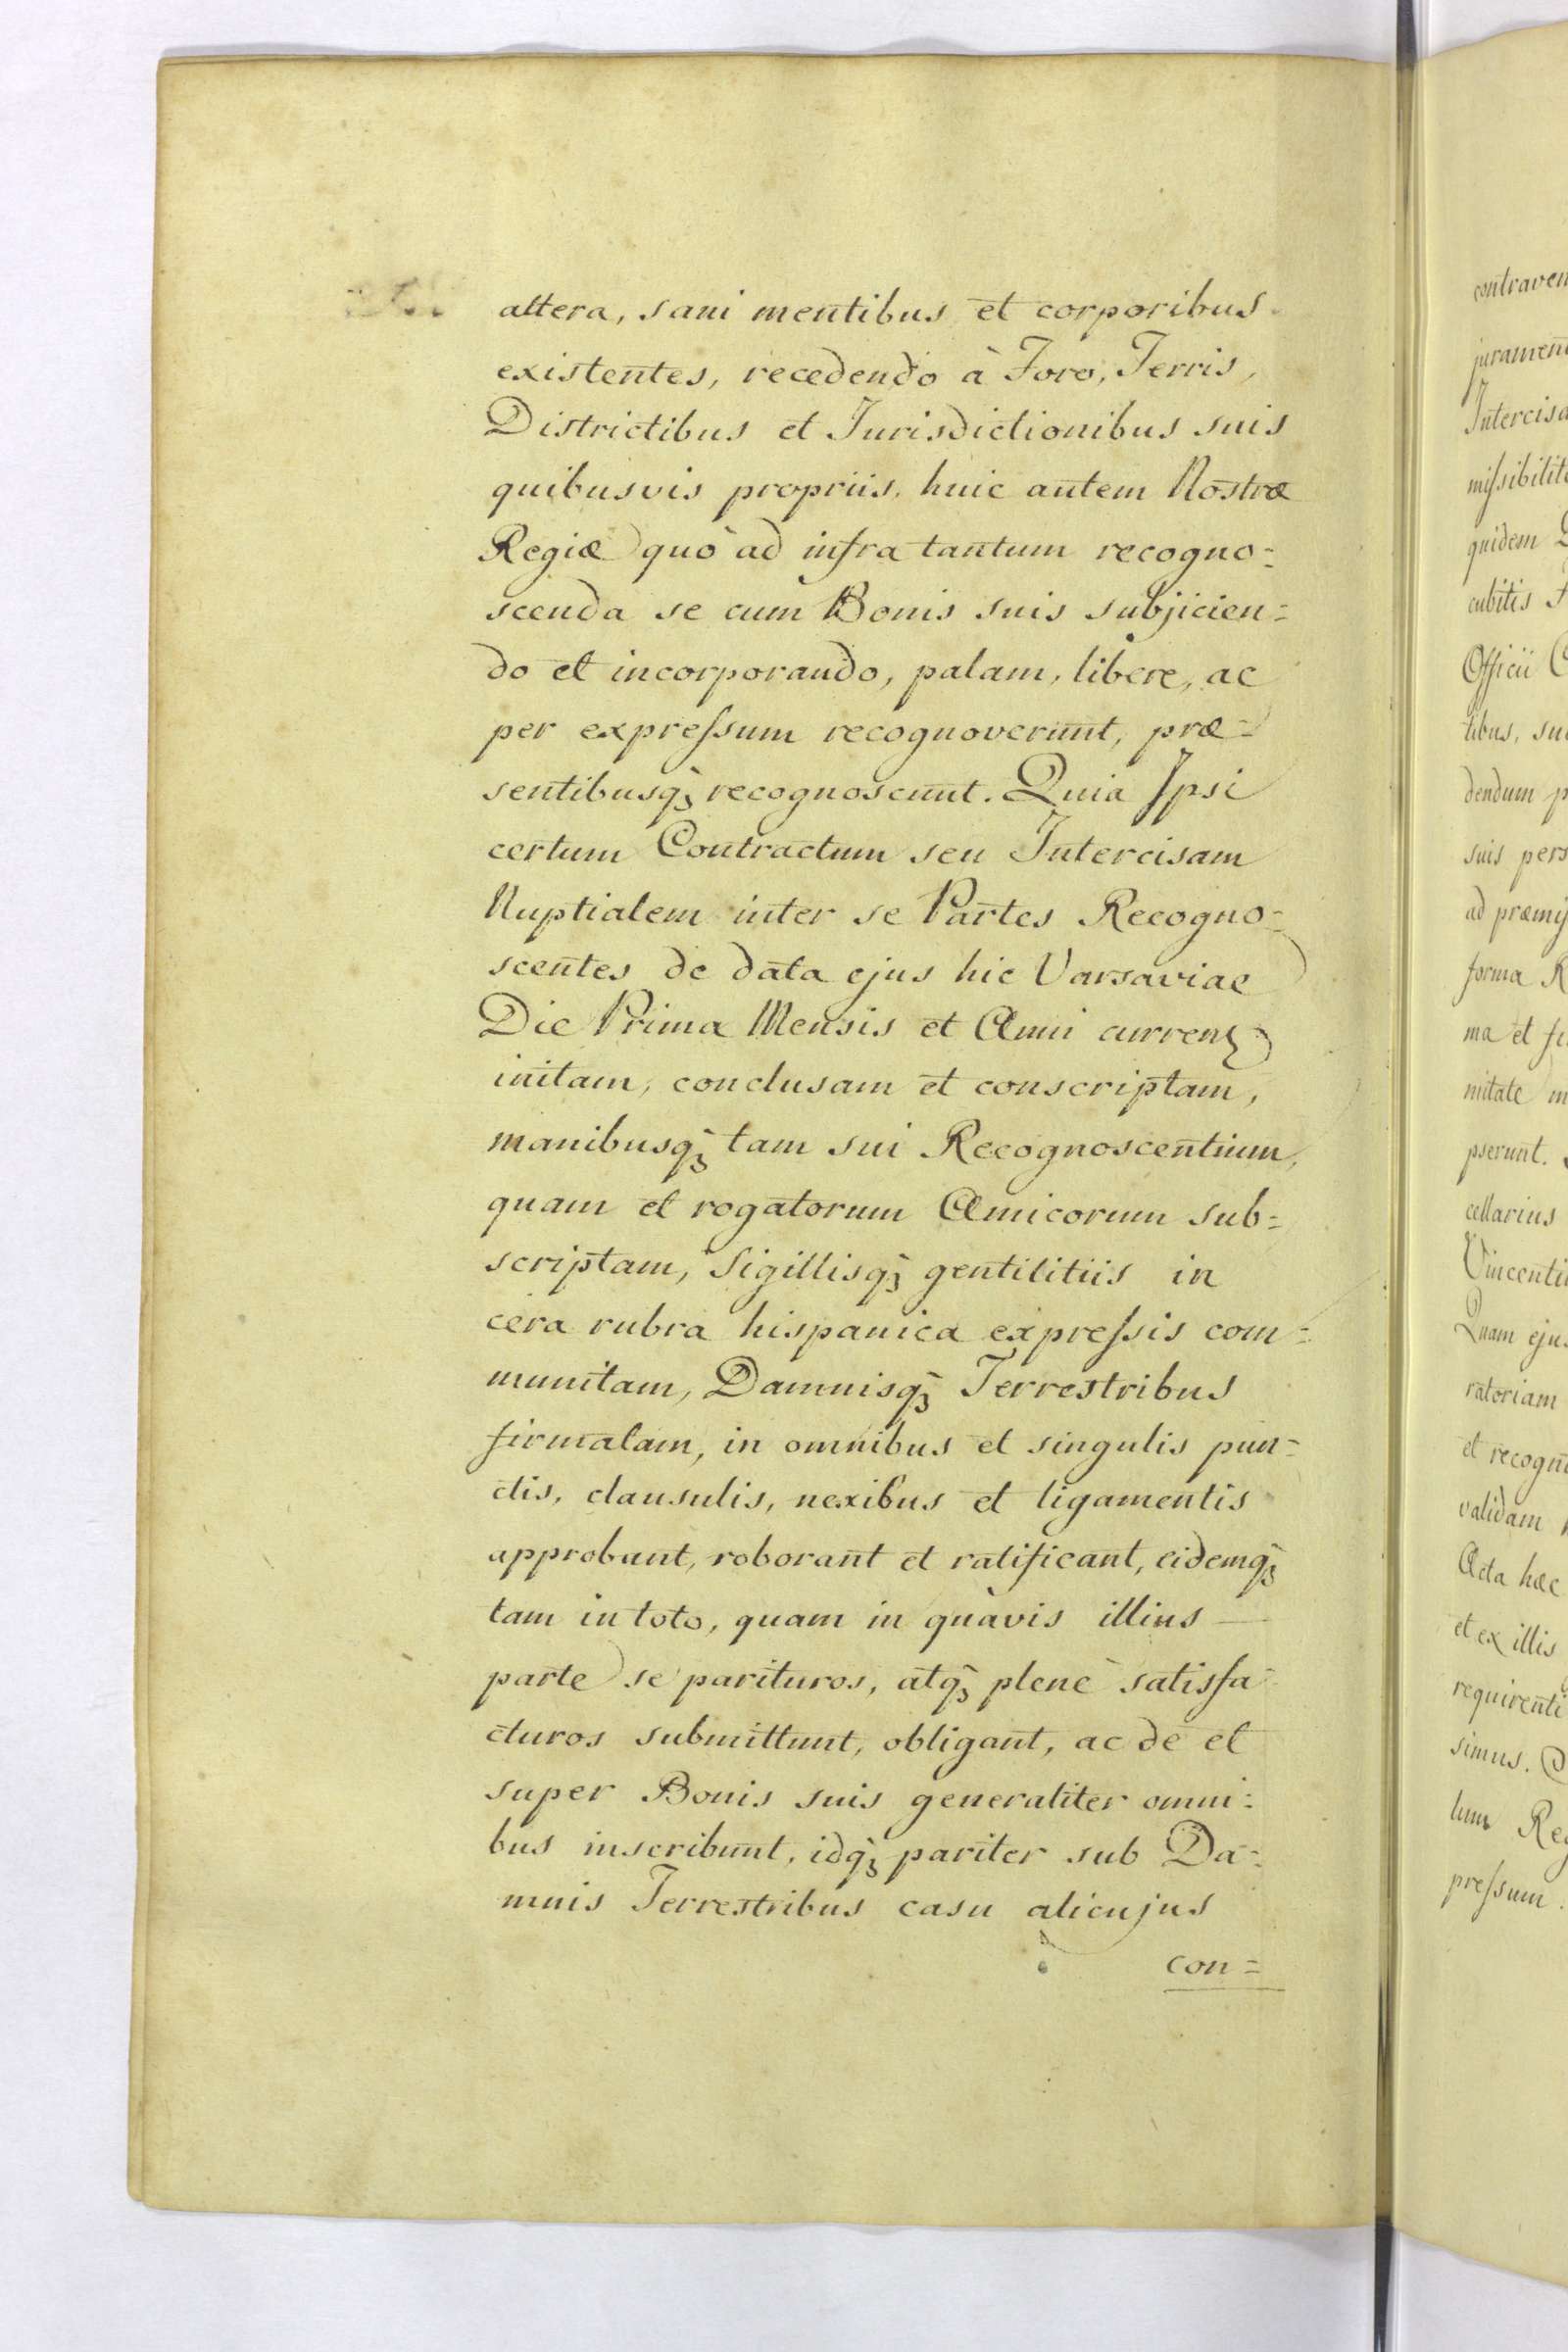 altera, sani mentibus et corporibus
existentes, recedendo à Foro, Terris,
Districtibus et Jurisdictionibus suis
quibusvis propriis, huic autem Nostræ
Regiæ quò ad infra tantum recogno=
scenda se cum Bonis suis subjicien=
do et incorporando, palam, libere, ac
per expreſsum recognoverunt, præ=
sentibusq̀ꝫ recognoscunt. Quia Ipsi
certum Contractum seu Intercisam
Nuptialem inter se Partes Recogno=
scentes de data ejus hic Varsaviae
Die Prima Mensis et Anni currenꝫ
initam, conclusam et conscriptam,
manibusq̀ꝫ tam sui Recognoscentium,
quam et rogatorum Amicorum sub=
scriptam, Sigillisq̀ꝫ gentilitiis in
cera rubra hispanica expreſsis com=
munitam, Damnisq̀ꝫ Terrestribus
firmatam, in omnibus et singulis pun=
ctis, clausulis, nexibus et ligamentis
approbant, roborant et ratificant, eidemq̀ꝫ
tam in toto, quam in quàvis illius —
parte se parituros, atq̀ꝫ plenè satisfa=
cturos submittunt, obligant, ac de et
super Bonis suis generaliter omni=
bus inscribunt, idq̀ꝫ pariter sub Da=
mnis Terrestribus casu alicujus
con=
contraven
jurament
Intercisa
miſsibilite
quidem
cubitis
Officii
tibus, su
dendum p
suis pers
ad præmiſ
forma R
ma et fi
nitate m
pserunt.
cellarius
Vincenti
Quam ejus
ratoriam
et recogno
validam
Acta hæc
et ex illis
requirenti
simus.
lum Reg
preſsum.